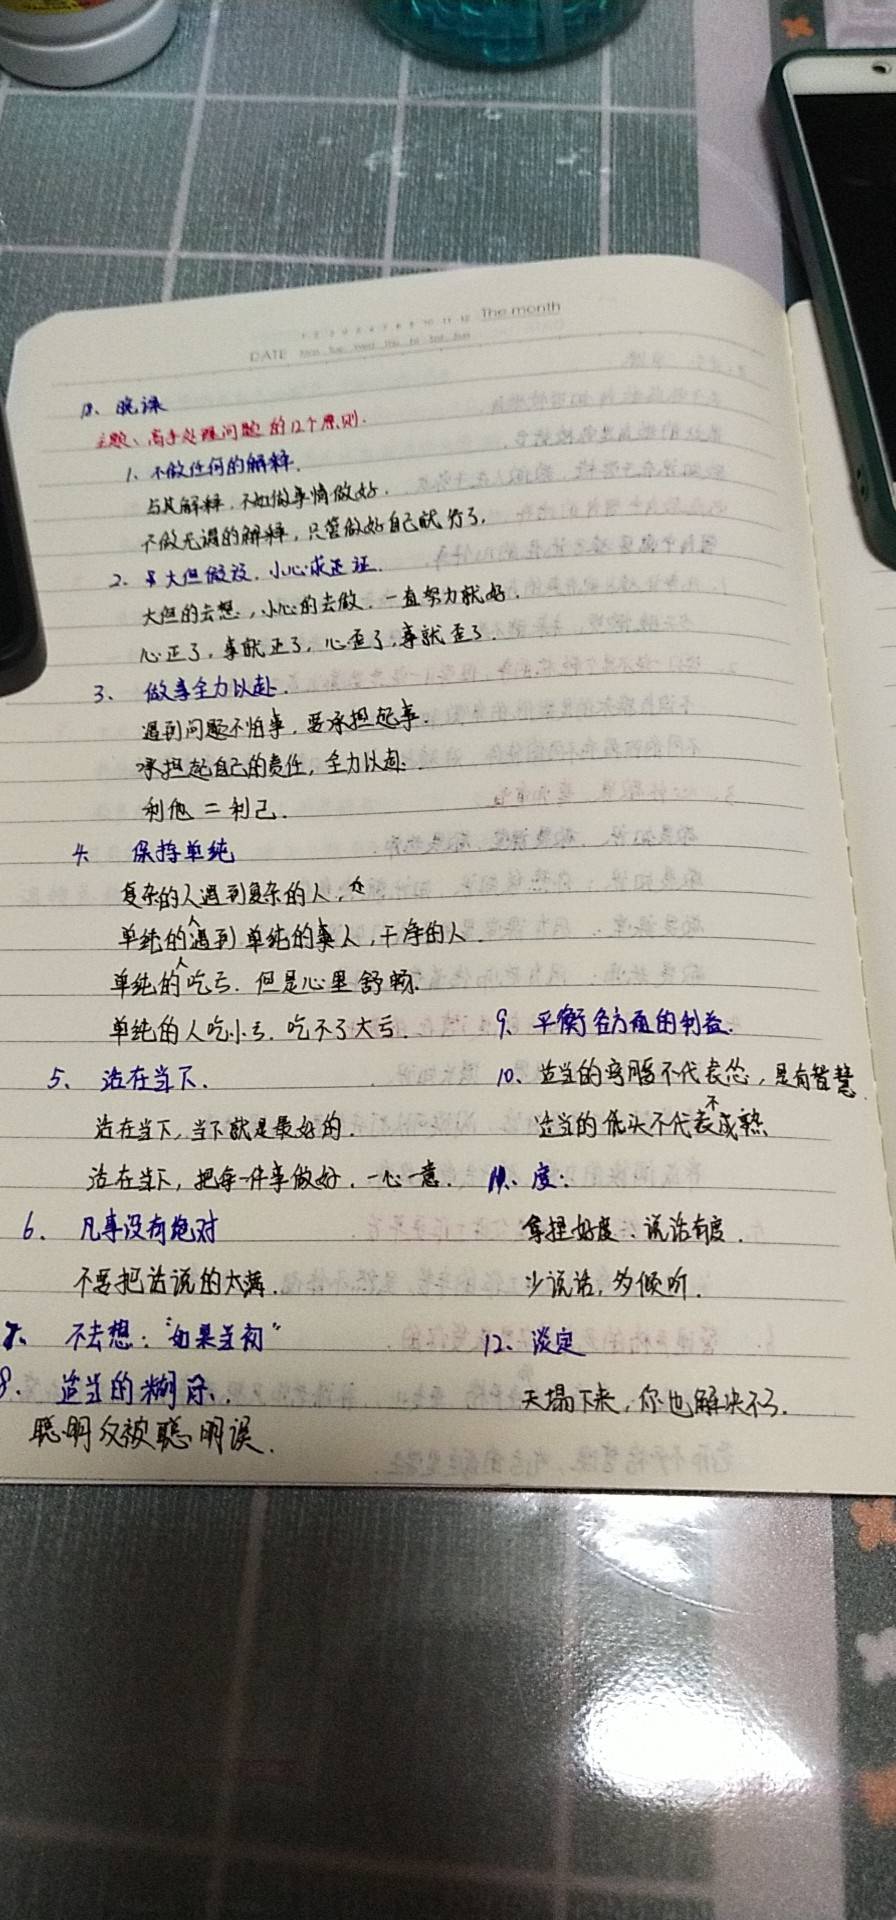 The month
DATE Mon Tue Wed Thu Fri Sat Sun
晚课
主题、高手处理问题的12个原则.
1、不做任何的解释.
与其解释,不如做事情做好.
不做无谓的解释,只管做好自己就行了.
2、大但假设,小心求正证.
大但的去想,小心的去做.一直努力就好.
心正了,事就正了,心歪了,事就歪了.
3、做事全力以赴.
遇到问题不怕事,要承担起事.
承担起自己的责任,全力以赴.
利他=利己.
4、保持单纯
复杂的人遇到复杂的人,
单纯的人遇到单纯的人,干净的人.
单纯的人吃亏.但是心里舒畅.
单纯的人吃小亏.吃不了大亏.
5、活在当下.
活在当下,当下就是最好的.
活在当下,把每一件事做好.一心一意.
6.凡事没有绝对
不要把话说的太满.
7、不去想:"如果当初"
8.适当的糊涂、
聪明反被聪明误.
9、平衡各方面的利益.
10、适当的弯腰不代表怂,是有智慧.
适当的低头不代表不成熟
11、度:
拿捏好度:说话有度.
少说话,多倾听.
12、淡定
天塌下来,你也解决不了.